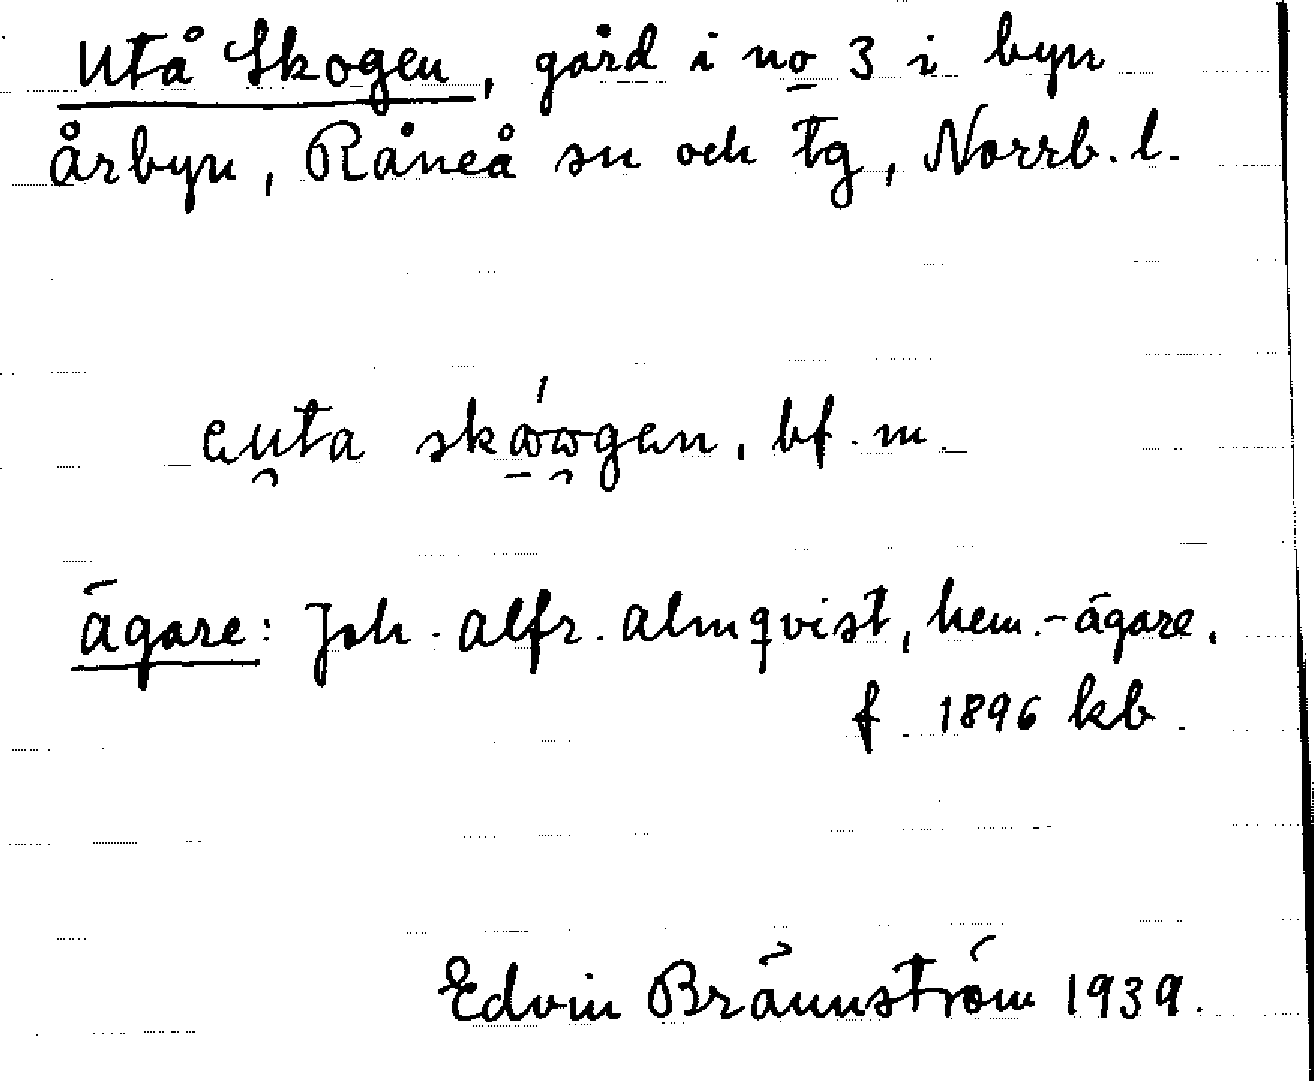 Utå Skogen, gård i no 3 i byn
Årbyn, Råneå sn och tg, Norrb. l.
bf. m.
Ägare: Joh. Alfr. Almqvist, hem.-ägare.
f. 1896 kb.
Edvin Brännström 1939.